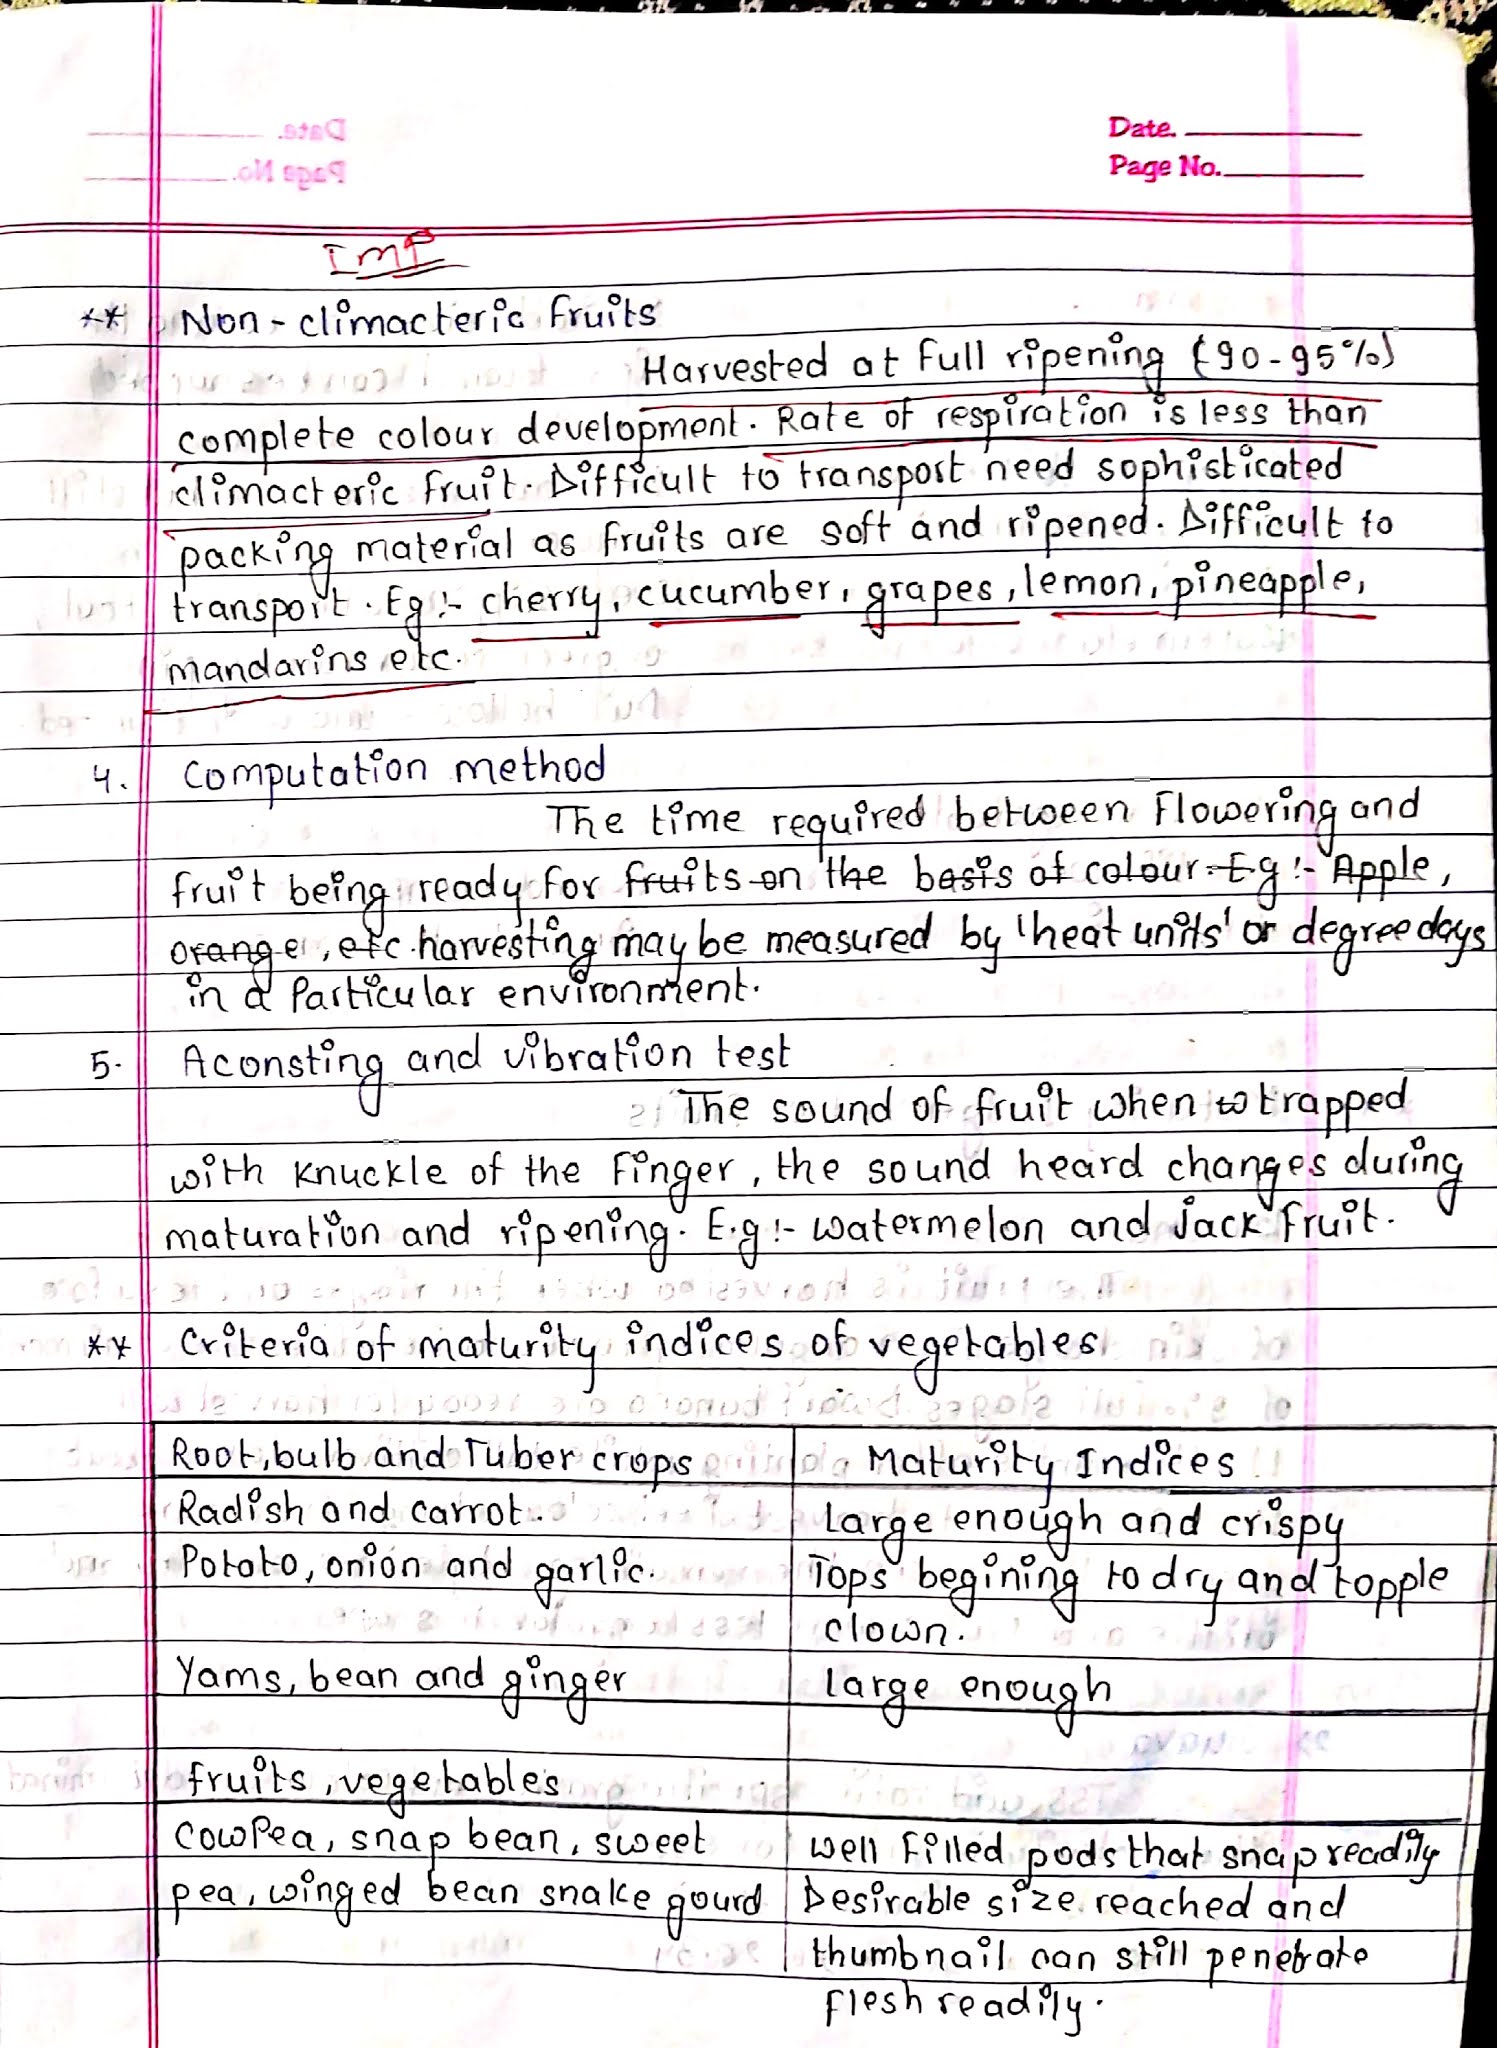 Date.
Page No.
Imp
** Non-climacteric fruits
Harvested at full ripening (90-95%)
complete colour development. Rate of respiration is less than
climacteric fruit. Difficult to transport need sophisticated
packing material as fruits are soft and ripened. Difficult to
transport. Eg:- cherry, cucumber, grapes, lemon, pineapple,
mandarins etc.
4. Computation method
The time required between Flowering and
fruit being ready for fruits on the basis of colour. Eg:- Apple,
orange, etc. harvesting may be measured by 'heat units' or degree days
in a Particular environment.
5. Aconsting and vibration test
The sound of fruit when to trapped
with knuckle of the Finger, the sound heard changes during
maturation and ripening. E.g:- watermelon and jack fruit.
** Criteria of maturity indices of vegetables
Root, bulb and Tuber crops Maturity Indices
Radish and carrot. Large enough and crispy
Pototo, onion and garlic. Tops begining to dry and topple
clown.
Yams, bean and ginger large enough
fruits, vegetables
CowPea, snap bean, sweet well filled pods that snap readily
pea, winged bean snake gourd Desirable size reached and
thumbnail can still penetrate
flesh readily.